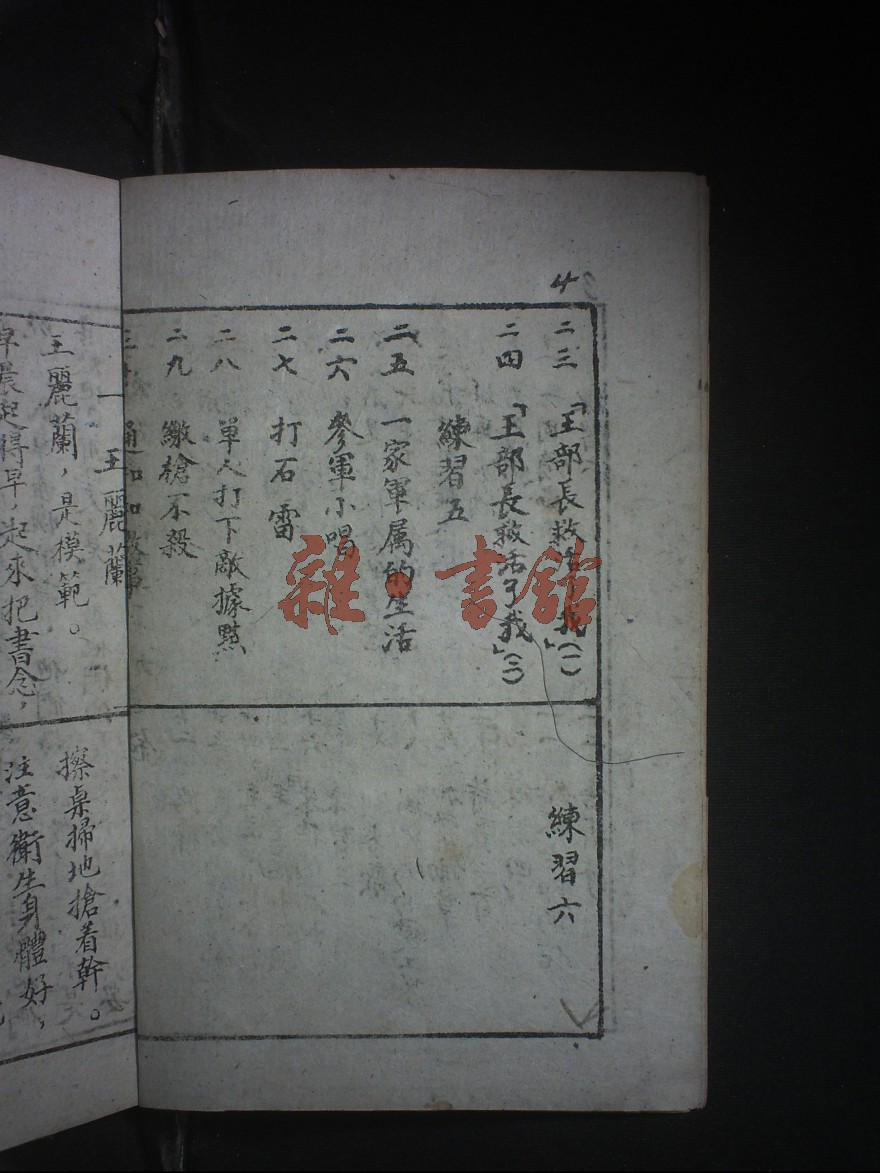 4
二三 「王部長救活了我」(一)
二四 「王部長救活了我」(二)
練習五
二五 一家軍属的生活
二六 參軍小唱
二七 打石雷
二八 單人打下敵據點
二九 繳槍不殺
練習六
一 王麗蘭
王麗蘭，是模範。
早晨起得早，起來把書念，
擦桌掃地搶着幹。
注意衛生身體好，
雜·書館